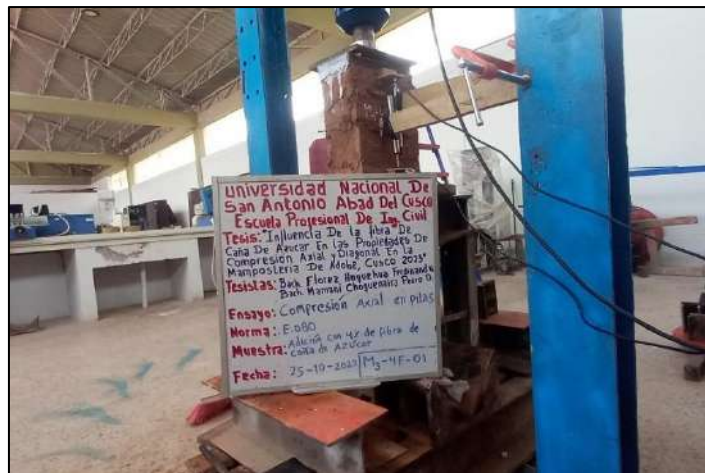 Universidad Nacional De
San Antonio Abad Del Cusco
Escuela Profesional De Ing. Civil
Tesis: "Influencia De la fibra De
Caña De Azucar En las Propiedades De
Compresión Axial y Diagonal En la
Mampostería De Adobe, Cusco 2023"
Tesistas: Bach. Florez Huquehua Ferdinand
Bach. Mamani Choquenaira Pedro
Ensayo: Compresión Axial en pilas
Norma: E.080
Muestra: Adición con 4% de fibra de
caña de Azucar
Fecha: 25-10-2023 M3-4F-01